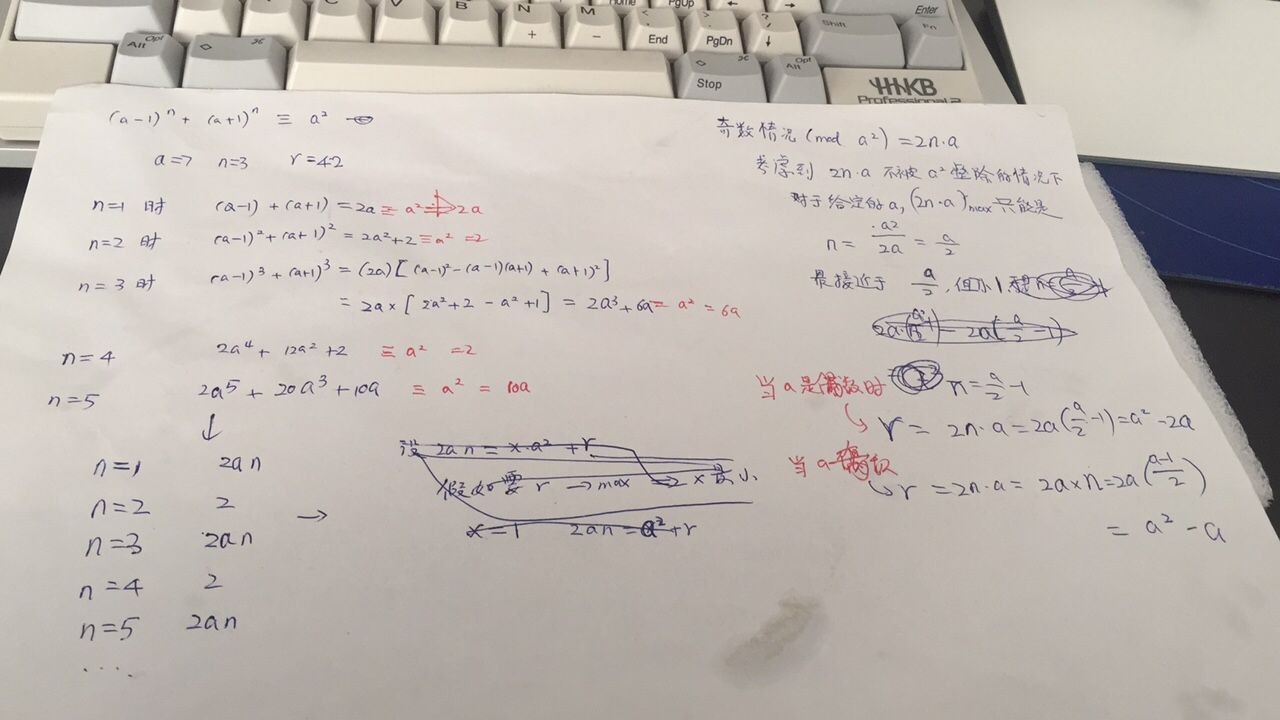 Home
PgUp
←
→
Enter
C
V
B
N
M
+
−
End
PgDn
↓
Shift
Fn
Alt
Opt
◇
⌘
◇
⌘
Stop
Alt
Opt
HHKB
Professional 2
(a-1)ⁿ + (a+1)ⁿ ≡ a²
a=7 n=3 r=42
n=1 时 (a-1) + (a+1) = 2a ≡ a² 2a
n=2 时 (a-1)² + (a+1)² = 2a²+2 ≡ a² =2
n=3 时 (a-1)³ + (a+1)³ = (2a)[(a-1)²-(a-1)(a+1)+(a+1)²]
= 2a×[2a²+2-a²+1] = 2a³+6a ≡ a² = 6a
n=4 2a⁴ + 12a²+2 ≡ a² =2
n=5 2a⁵ + 20a³+10a ≡ a² = 10a
↓
n=1 2an
n=2 2
n=3 2an
n=4 2
n=5 2an
....
→
设 2an = x·a² + r
假如要 r → max → x 最小
x=1 2an=a²+r
奇数情况 (mod a²) = 2n·a
考虑到 2n·a 不被 a² 整除的情况下
对于给定的a, (2n·a)max 只能是
n = a²/2a = a/2
最接近于 a/2, 但小
2a( ) = 2a(a/2 -1)
当 a是偶数时 n = a/2 -1
↳ r = 2n·a = 2a(a/2 -1) = a² - 2a
当 a
↳ r = 2n·a = 2a×n = 2a((a-1)/2)
= a² - a